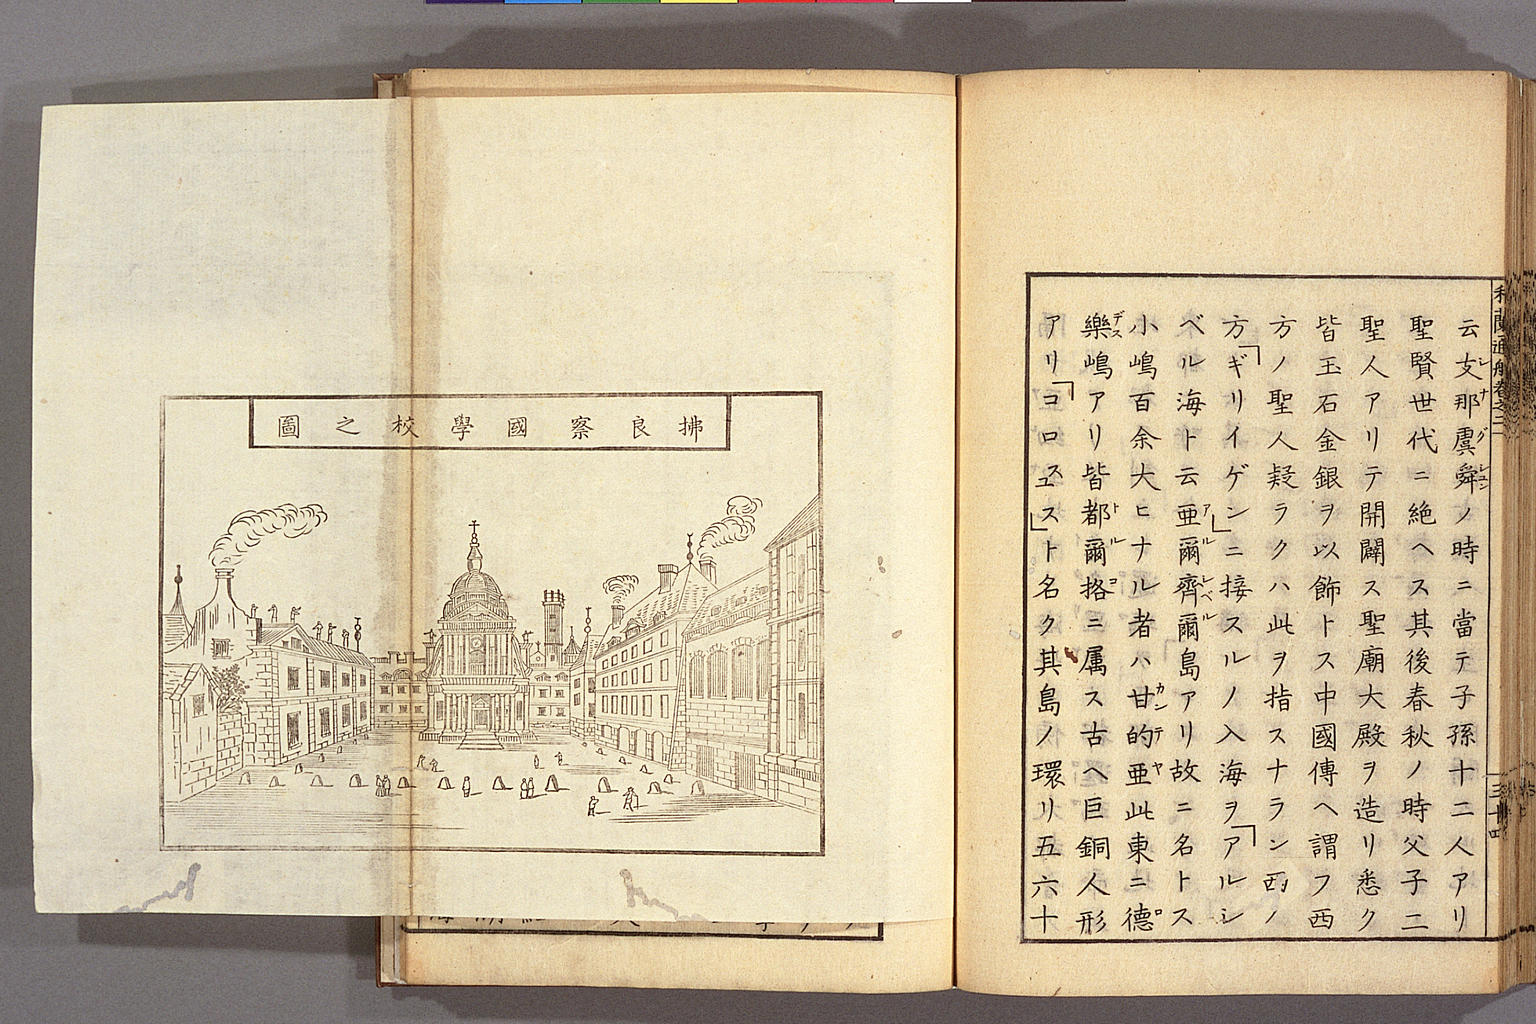 云支那虞舜ノ時ニ當テ子孫十二人アリ
聖賢世代ニ絶ヘス其後春秋ノ時父子二
聖人アリテ開闢ス聖廟大殿ヲ造リ悉ク
皆玉石金銀ヲ以飾トス中國傳ヘ謂フ西
方ノ聖人疑ラクハ此ヲ指スナラン西ノ
方「ギリイゲン」ニ接スルノ入海ヲ「アルシ
ベル海ト云亜爾齊爾島アリ故ニ名トス
小嶋百余大ヒナル者ハ甘的亜此東ニ德
樂嶋アリ皆都爾格ニ属ス古ヘ巨銅人形
アリ「コロスユス」ト名ク其島ノ環リ五六十
三十四
拂良察國學校之圖